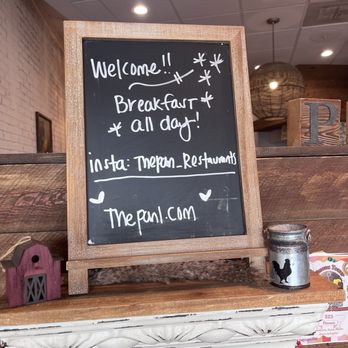 Welcome!!
Breakfast
all day!
insta: Thepan_Restaurants
Thepan1.com
P